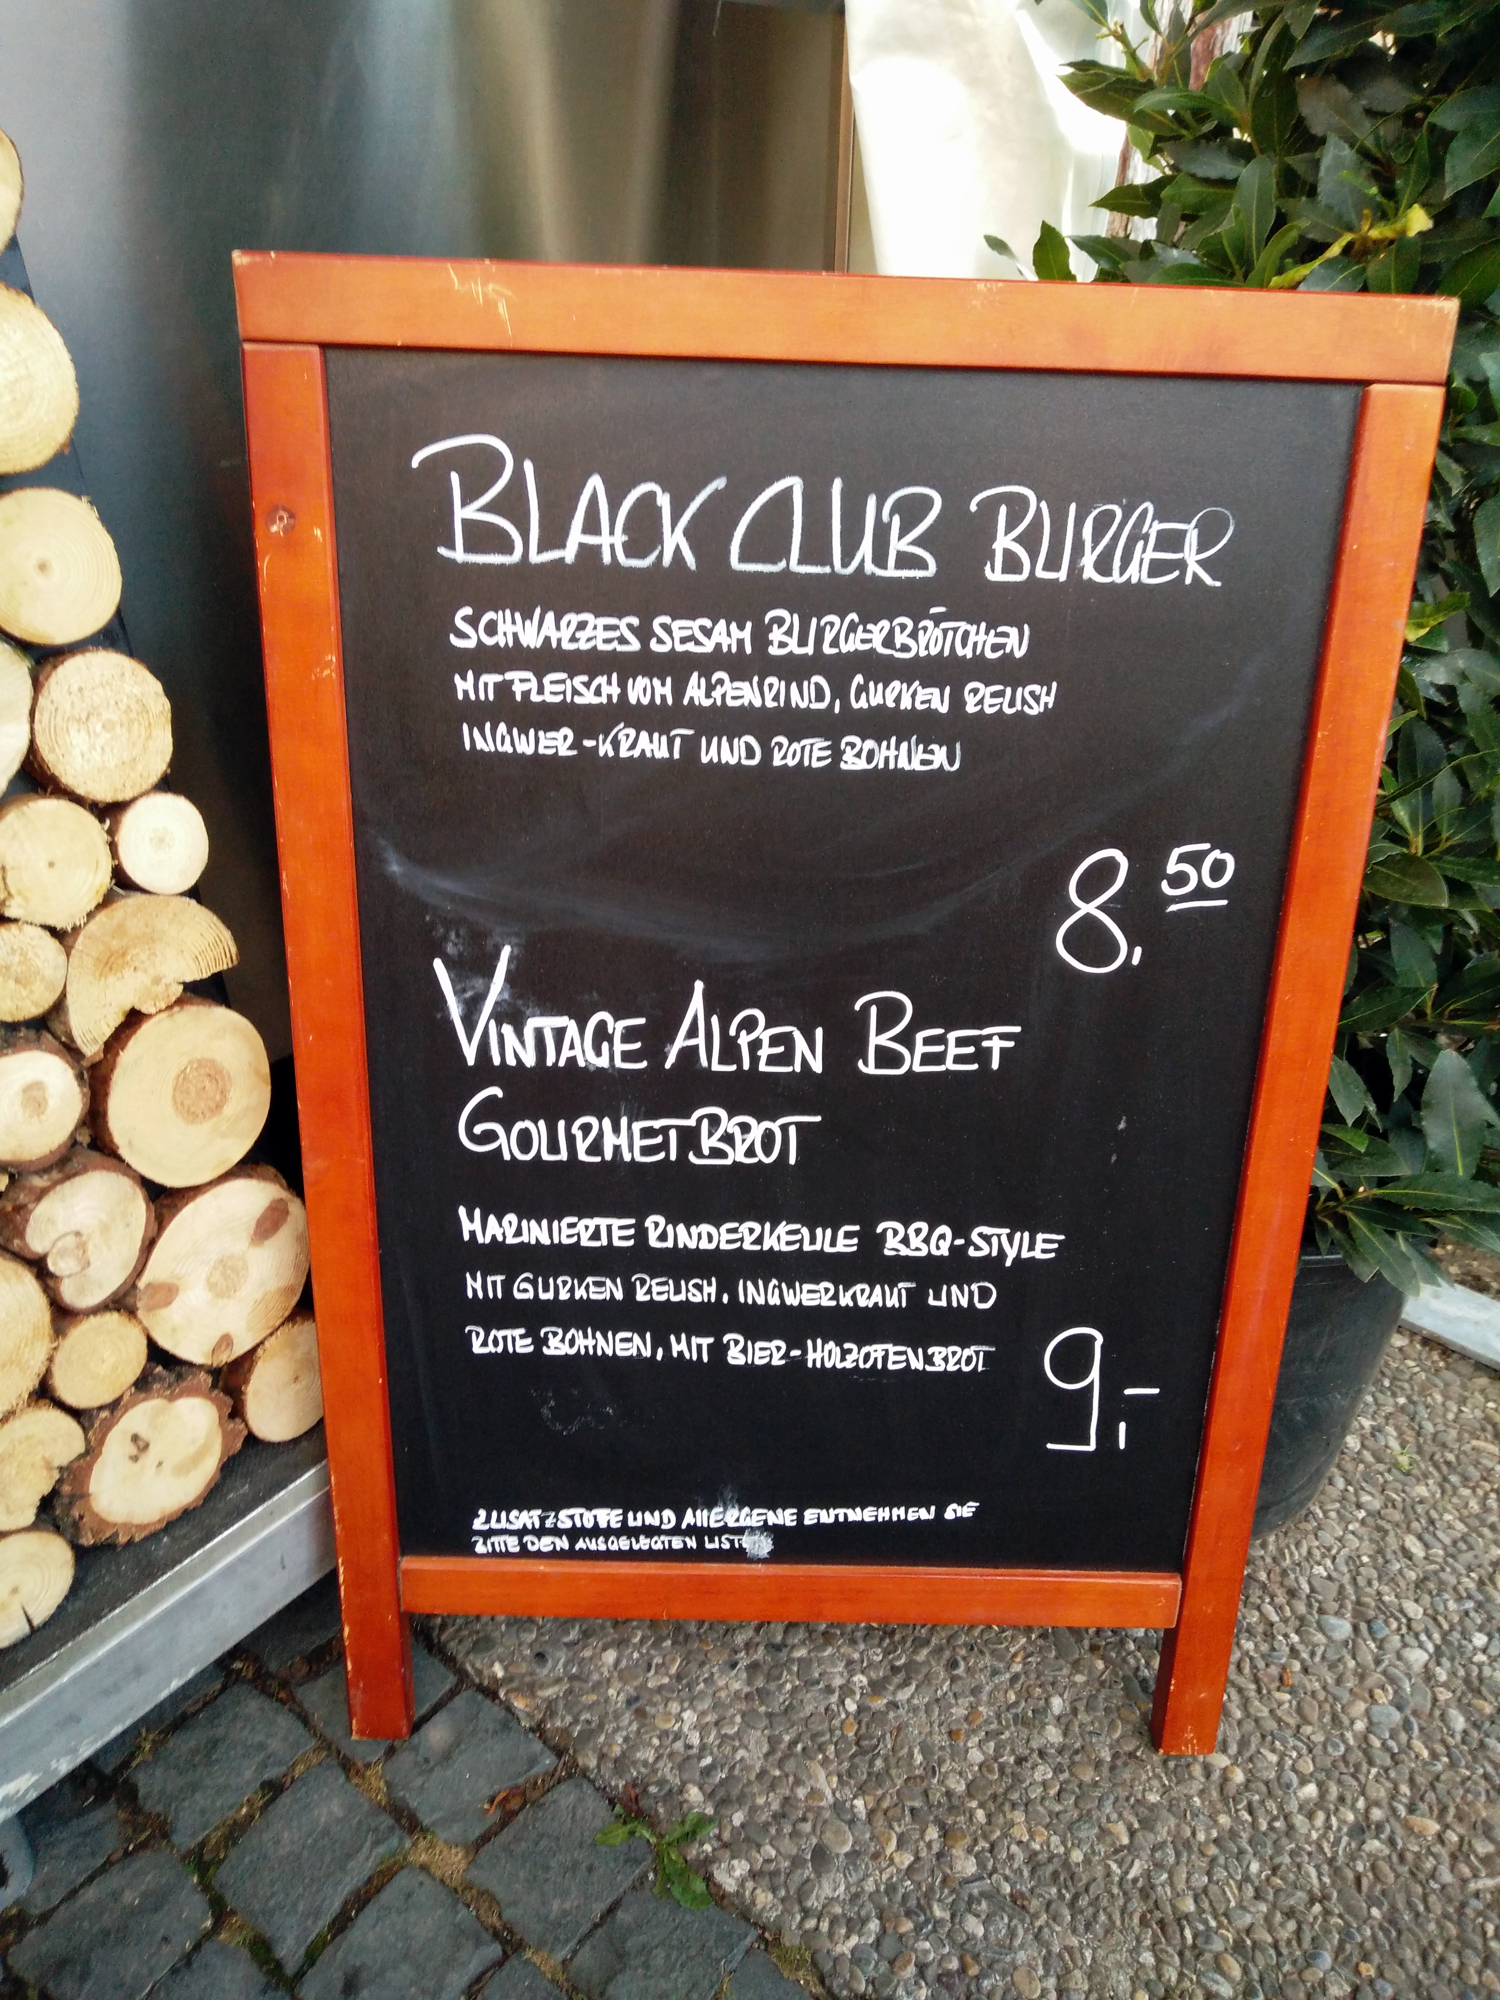 BLACK CLUB BURGER
SCHWARZES SESAM BURGERBRÖTCHEN
MIT FLEISCH VOM ALPENRIND, GURKEN RELISH
INGWER-KRAUT UND ROTE BOHNEN
8,50
VINTAGE ALPEN BEEF
GOURMETBROT
MARINIERTE RINDERKEULE BBQ-STYLE
MIT GURKEN RELISH, INGWERKRAUT UND
ROTE BOHNEN, MIT BIER-HOLZOFENBROT
9,-
ZUSATZSTOFE UND AllERGENE ENTNEHMEN SIE
BITTE DEN AUSGELEGTEN